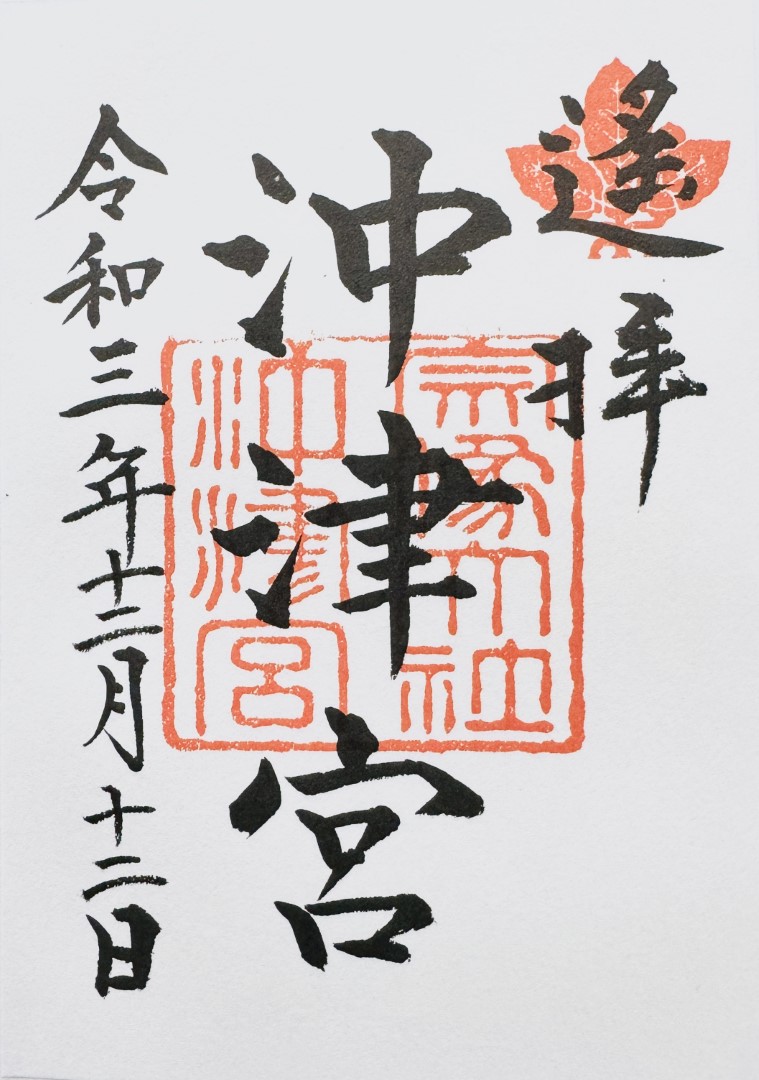 遙拝
沖津宮
宗像大社
沖津宮
令和三年十二月十二日